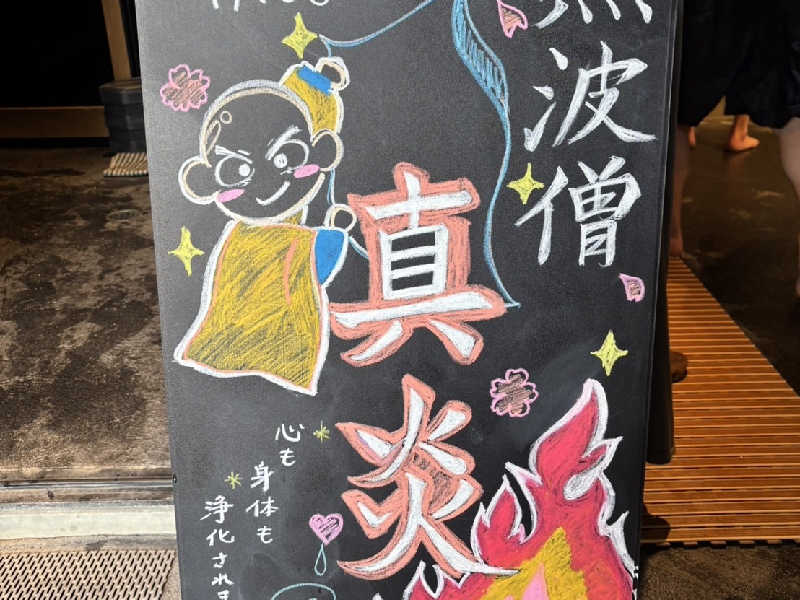 波僧
真炎
心も
身体も
浄化され